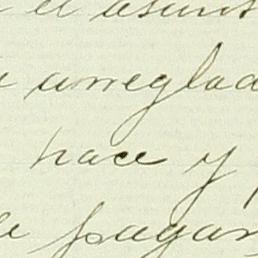 el asunt
arreglad
hace y
pagar